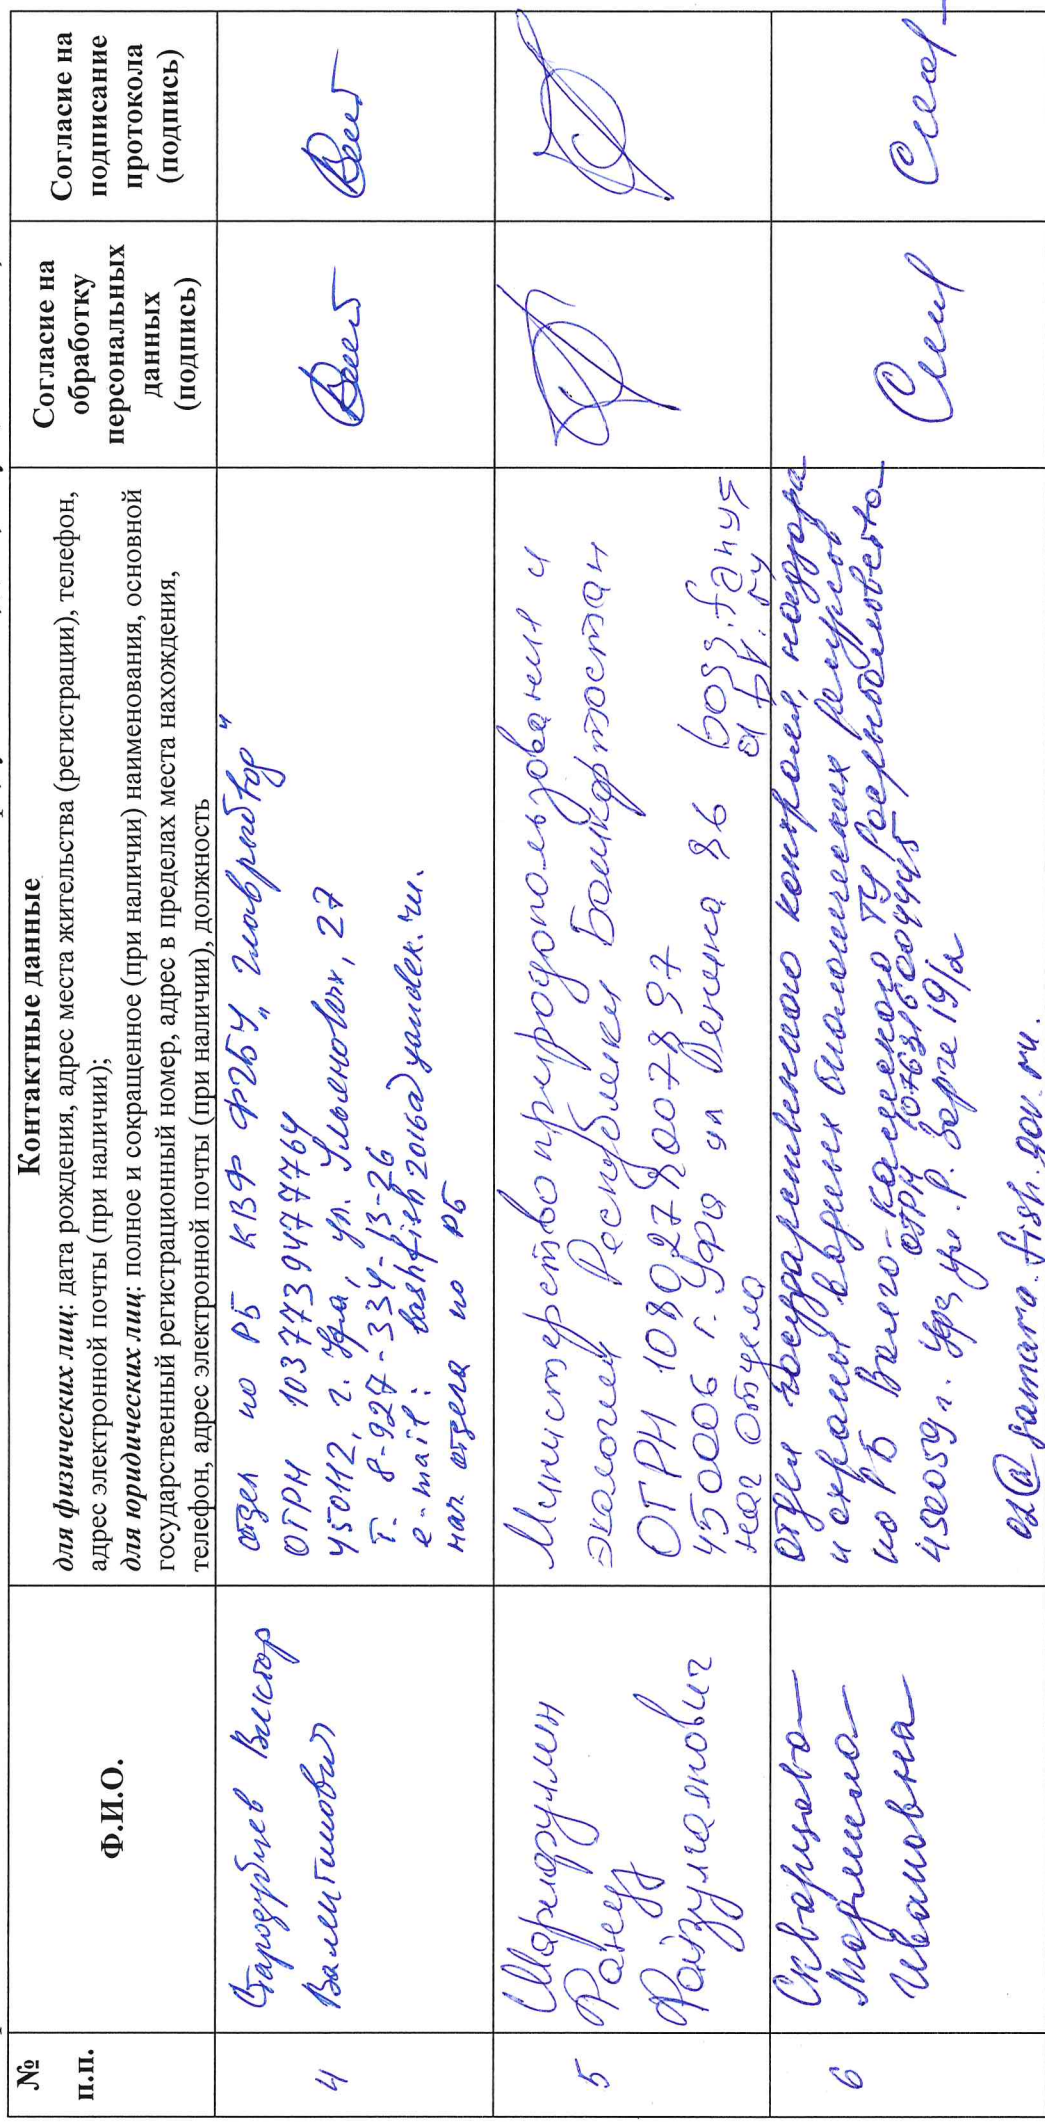 №
п.п.
Ф.И.О.
Контактные данные
для физических лиц: дата рождения, адрес места жительства (регистрации), телефон,
адрес электронной почты (при наличии);
для юридических лиц: полное и сокращенное (при наличии) наименования, основной
государственный регистрационный номер, адрес в пределах места нахождения,
телефон, адрес электронной почты (при наличии), должность
Согласие на
обработку
персональных
данных
(подпись)
Согласие на
подписание
протокола
(подпись)
4
Стародубцев Виктор
Валентинович
отдел по РБ КВФ ФГБУ „Главрыбвод"
ОГРН 1037739477764
450112, г. Уфа, ул. Ульяновых, 27
т. 8-927-334-13-26
e-mail: bashfish2016@yandex.ru.
нач отдела по РБ
5
Шарифуллин
Фануз
Файзулгаянович
Министерство природопользования и
экологии Республики Башкортостан
ОГРН 1080278007897
450006 г. Уфа ул Ленина 86
нач отдела
6
Скворцова
Марина
Ивановна
отдел государственного контроля, надзора
и охраны водных биологических ресурсов
по РБ Волго-Камского ТУ Росрыболовства
ОГРН 1076316004445
450059 г. Уфа, ул. Р. Зорге 19/2
02@samara.fish.gov.ru.